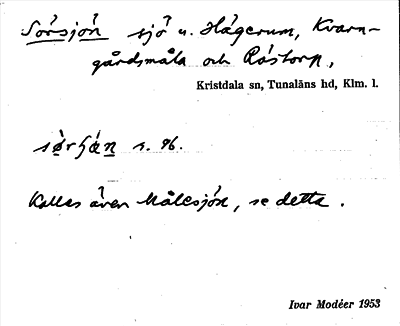 Sörsjön sjö u. Hägerum, Kvarn-
gårdsmåla och Råstorp,
Kristdala sn, Tunaläns hd, Klm. l.
s. 96.
Kallas även Målesjön, se detta.
Ivar Modéer 1953